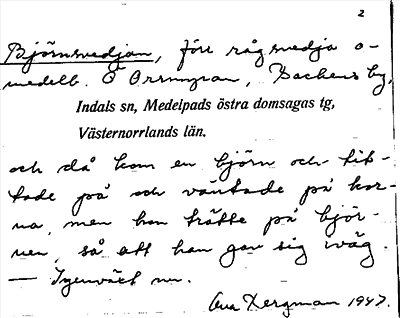 2
Björnsvedjan, förr rågsvedja o-
medelb. Ö Orrmyran, Backens by,
Indals sn, Medelpads östra domsagas tg,
Västernorrlands län.
och då kom en björn och tit-
tade på och väntade på kor-
na, men han trätte på björ-
nen, så att han gav sig iväg.
— Igenväxt nu.
Bergman 1947.